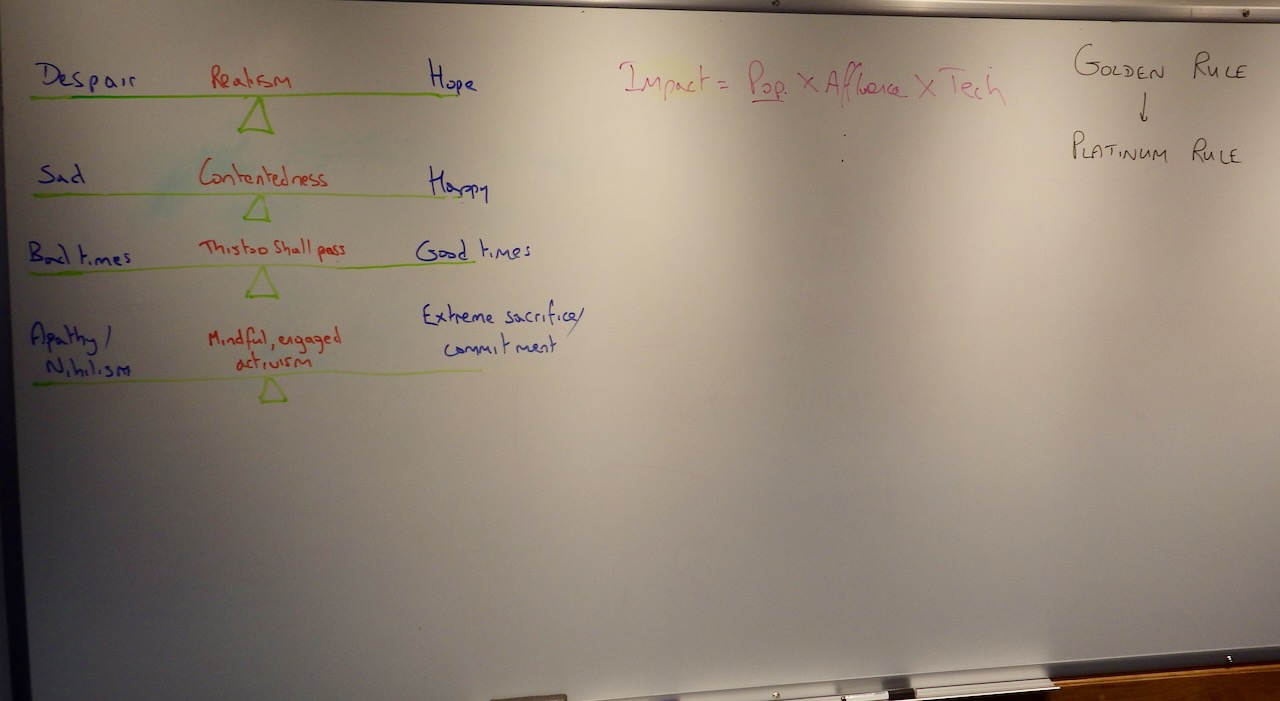 Despair Realism Hope
Sad Contentedness Happy
Bad times This too shall pass Good times
Apathy/ Mindful, engaged Extreme sacrifice/
Nihilism activism commitment
Impact = Pop. × Affluence × Tech
GOLDEN RULE
↓
PLATINUM RULE